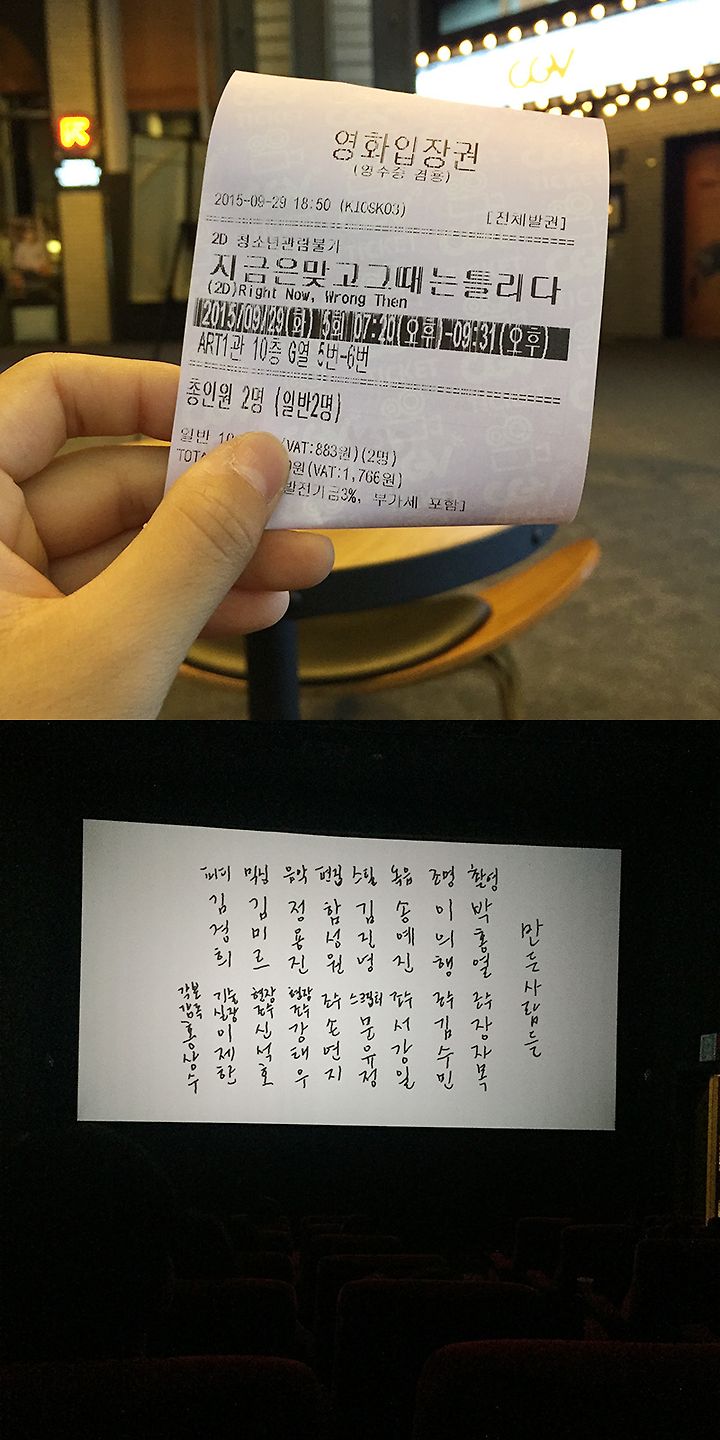 CGV
영화입장권
(영수증 겸용)
2015-09-29 18:50 (KIOSK03) [전체발권]
2D 청소년관람불가
지금은맞고그때는틀리다
(2D)Right Now, Wrong Then
2015/09/29(화) 5회 07:20(오후)-09:31(오후)
ART1관 10층 G열 5번-6번
총인원 2명 (일반2명)
일반 10 (VAT:883원)(2명)
TOTA 원(VAT:1,766원)
발전기금3%, 부가세 포함]
만든사람들
촬영 박홍열 조수 장자목
조명 이의행 조수 김수민
녹음 송예진 조수 서강일
스틸 김진영 스크립터 문유정
편집 함성원 조수 손연지
음악 정용진 현장조수 강태우
믹싱 김미르 현장조수 신석호
피디 김경희 기능실장 이제한
각본 감독 홍상수